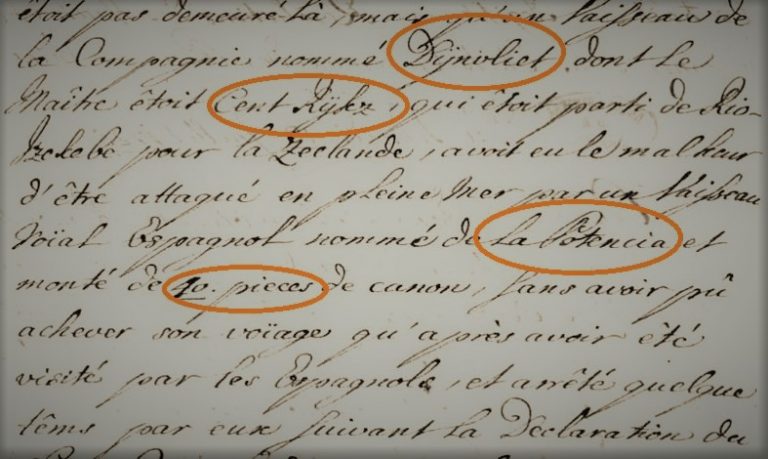 étoit pas demeuré là, mais qu'un Vaisseau de
la Compagnie nommé Dijnvliet, dont le
Maître étoit Cent Rijkz, qui étoit parti de Rio-
Izekebe pour la Zeelande, avoit eu le malheur
d'être attaqué en pleine Mer par un Vaisseau
Roïal Espagnol nommé de la Potencia et
monté de 40. pieces de canon, sans avoir pû
achever son voïage qu'après avoir été
visité par les Espagnols, et arrêté quelque
têms par eux suivant la Declaration du